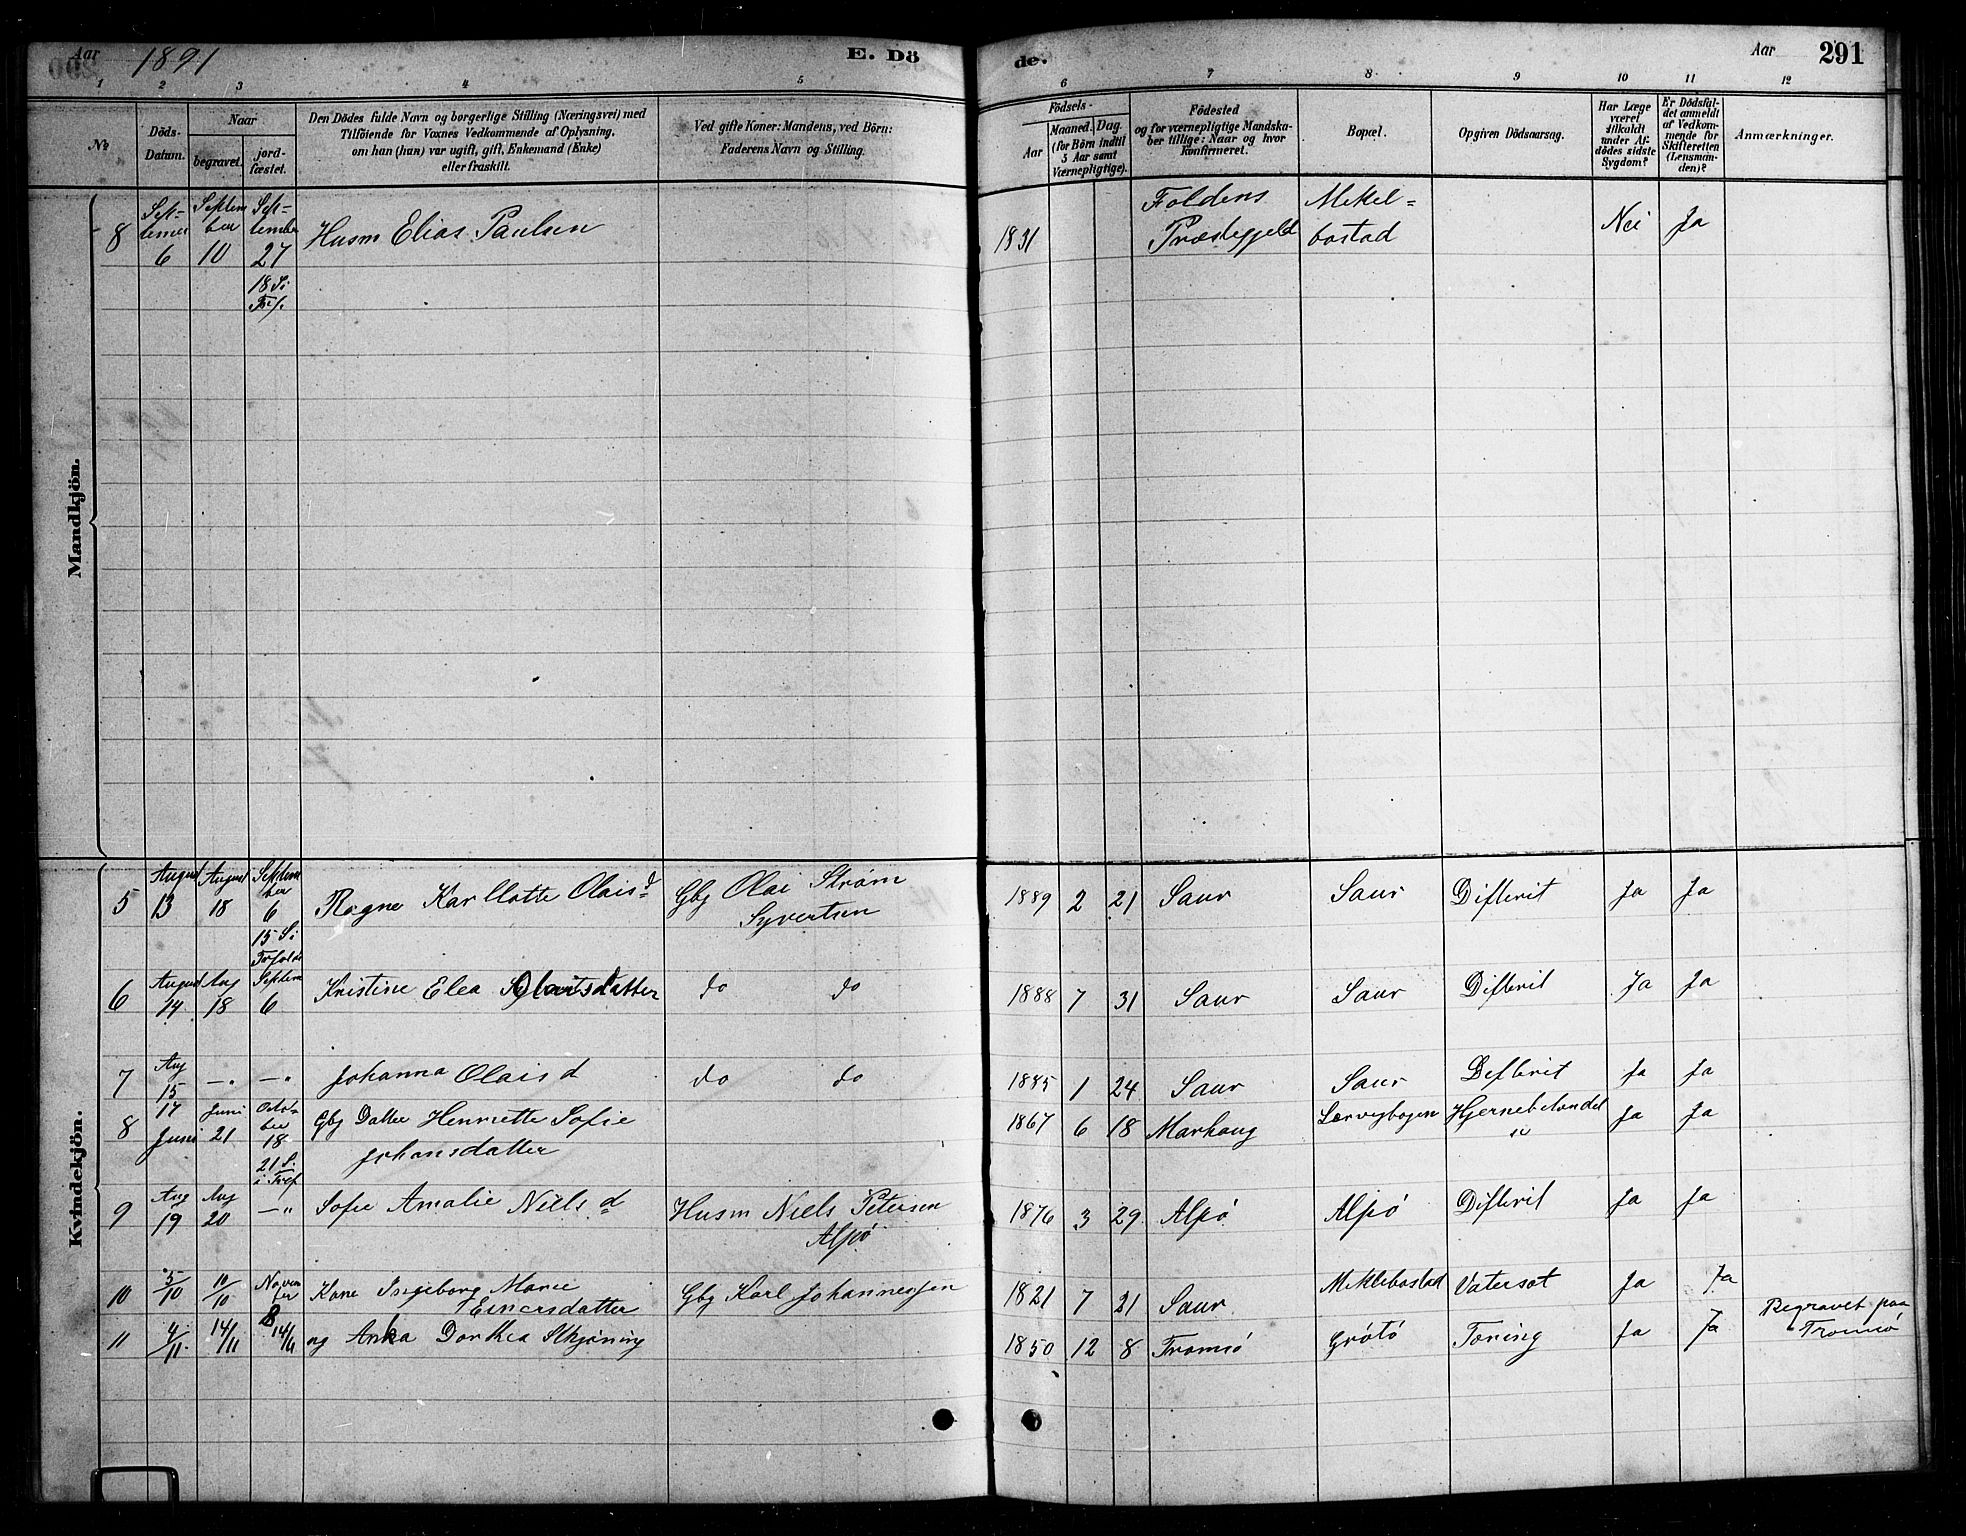 Aar 1891 E. Dö
1 2 3 4 5
№
Döds-
Datum.
Naar
begravet.
jord-
fæstet.
Den Dödes fulde Navn og borgerlige Stilling (Næringsvei) med
Tilföiende for Voxnes Vedkommende af Oplysning,
om han (hun) var ugift, gift, Enkemand (Enke)
eller fraskilt.
Ved gifte Koner: Mandens, ved Börn:
Faderens Navn og Stilling.
de. Aar 291
6 7 8 9 10 11 12
Födsels-
Aar
Maaned. Dag.
(for Börn indtil
5 Aar samt
Værnepligtige).
Födested
og for værnepligtige Mandska-
ber tillige: Naar og hvor
konfirmeret.
Bopæl.
Opgiven Dödsaarsag.
Har Læge
været
tilkaldt
under Af-
dödes sidste
Sygdom?
Er Dödsfal-
det anmeldt
af Vedkom-
mende for
Skifteretten
(Lensman-
den)?
Anmærkninger.
Mandkjön.
8 Sep-
tember
6
Septem
ber
10
Sep-
tember
27
18 S. i
Tref.
Husm Elias Paulsen
1831
Foldens
Præstegjeld
Mekel-
bostad
Nei Ja
Kvindekjön.
5 August
13
August
18
Septem
ber
6
15 S. i
Trefolds
Ragna Karllotte Olaisd
Gbg Olai Strøm
Syvertsen
1889 2 21 Saur Saur Difterit Ja Ja
6 August
14
Aug
18
Septem
6
Kristine Elea Olaisdatter do do
1888 7 31 Saur Saur Difterit Ja Ja
7 Aug
15
—"— —"—
Johanna Olais d do do
1885 1 24 Saur Saur Difterit Ja Ja
8 17
Juni
Juni
21
Octo-
ber
18
21 S.
i Tref
Gbg Datter Henriette Sofie
Johansdatter
1867 6 18 Marhaug Leervegbogen Hjernebetændel
se
Ja Ja
9 Aug
19
Aug
20
—"—
Sofie Amalie Niels d
Husm Niels Petersen
Alpø
1876 3 29 Alpø Alpø Difterit Ja Ja
10 5/10 10/10 Novem
ber
8
Kone Ingeborg Marie
Einersdatter
Gbg Karl Johannessen
1821 7 21 Saur Miklebostad Vatersot Ja Ja
11 4/11 14/11 14/11
og Anka Dorthea Skjøning
1850 12 8 Tromsø Grøtø Tæring Ja Ja
Begravet paa
Tromsø